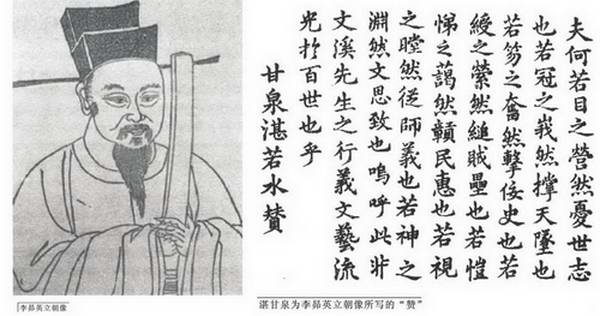 夫何若目之營然憂世志
也若冠之峩然撐天墜也
若笏之奮然擊佞史也若
綬之縈然縋賊壘也若愷
悌之藹然贛民惠也若視
之瞠然從師義也若神之
淵然文思致也嗚呼此非
文溪先生之行義文藝流
光扵百世也乎
甘泉湛若水賛
李昴英立朝像
湛甘泉为李昴英立朝像所写的“赞”